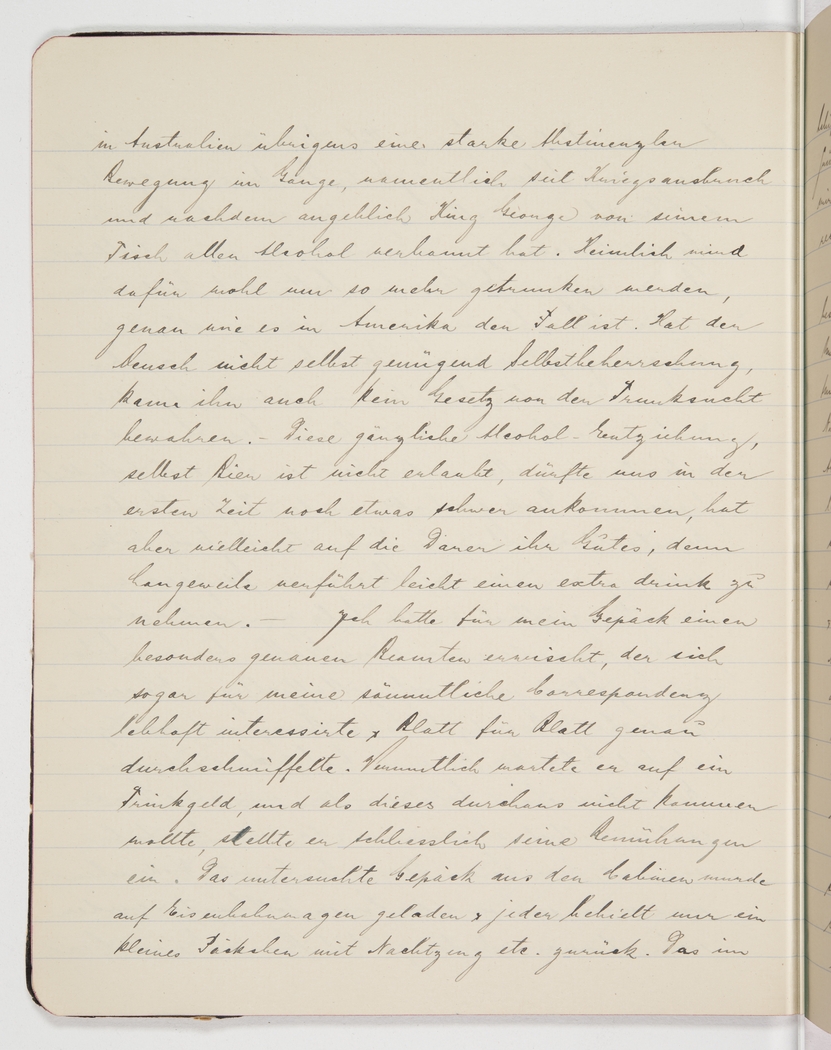 in Australien übrigens eine starke Abstinenzler
Bewegung im Gange, namentlich seit Kriegsausbruch
und nachdem angeblich King George von seinem
Tisch allen Alcohol verbannt hat. Heimlich wird
dafür wohl um so mehr getrunken werden,
genau wie es in Amerika der Fall ist. Hat der
Mensch nicht selbst genügend Selbstbeherrschung,
kann ihn auch kein Gesetz von der Trunksucht
bewahren. - Diese gänzliche Alcohol-Entziehung,
selbst Bier ist nicht erlaubt, dürfte uns in der
ersten Zeit noch etwas schwer ankommen, hat
aber vielleicht auf die Dauer ihr Gutes, denn
Langeweile verführt leicht einen extra drink zu
nehmen. - Ich hatte für mein Gepäck einen
besonders genauen Beamten erwischt, der sich
sogar für meine sämmtliche Correspondenz
lebhaft interessirte & Blatt für Blatt genau
durchschnüffelte. Vermutlich wartete er auf ein
Trinkgeld, und als dieses durchaus nicht kommen
wollte, stellte er schliesslich seine Bemühungen
ein. Das untersuchte Gepäck aus den Cabinen wurde
auf Eisenbahnwagen geladen & jeder behielt nur ein
kleines Täschchen mit Nachtzeug etc. zurück. Das im